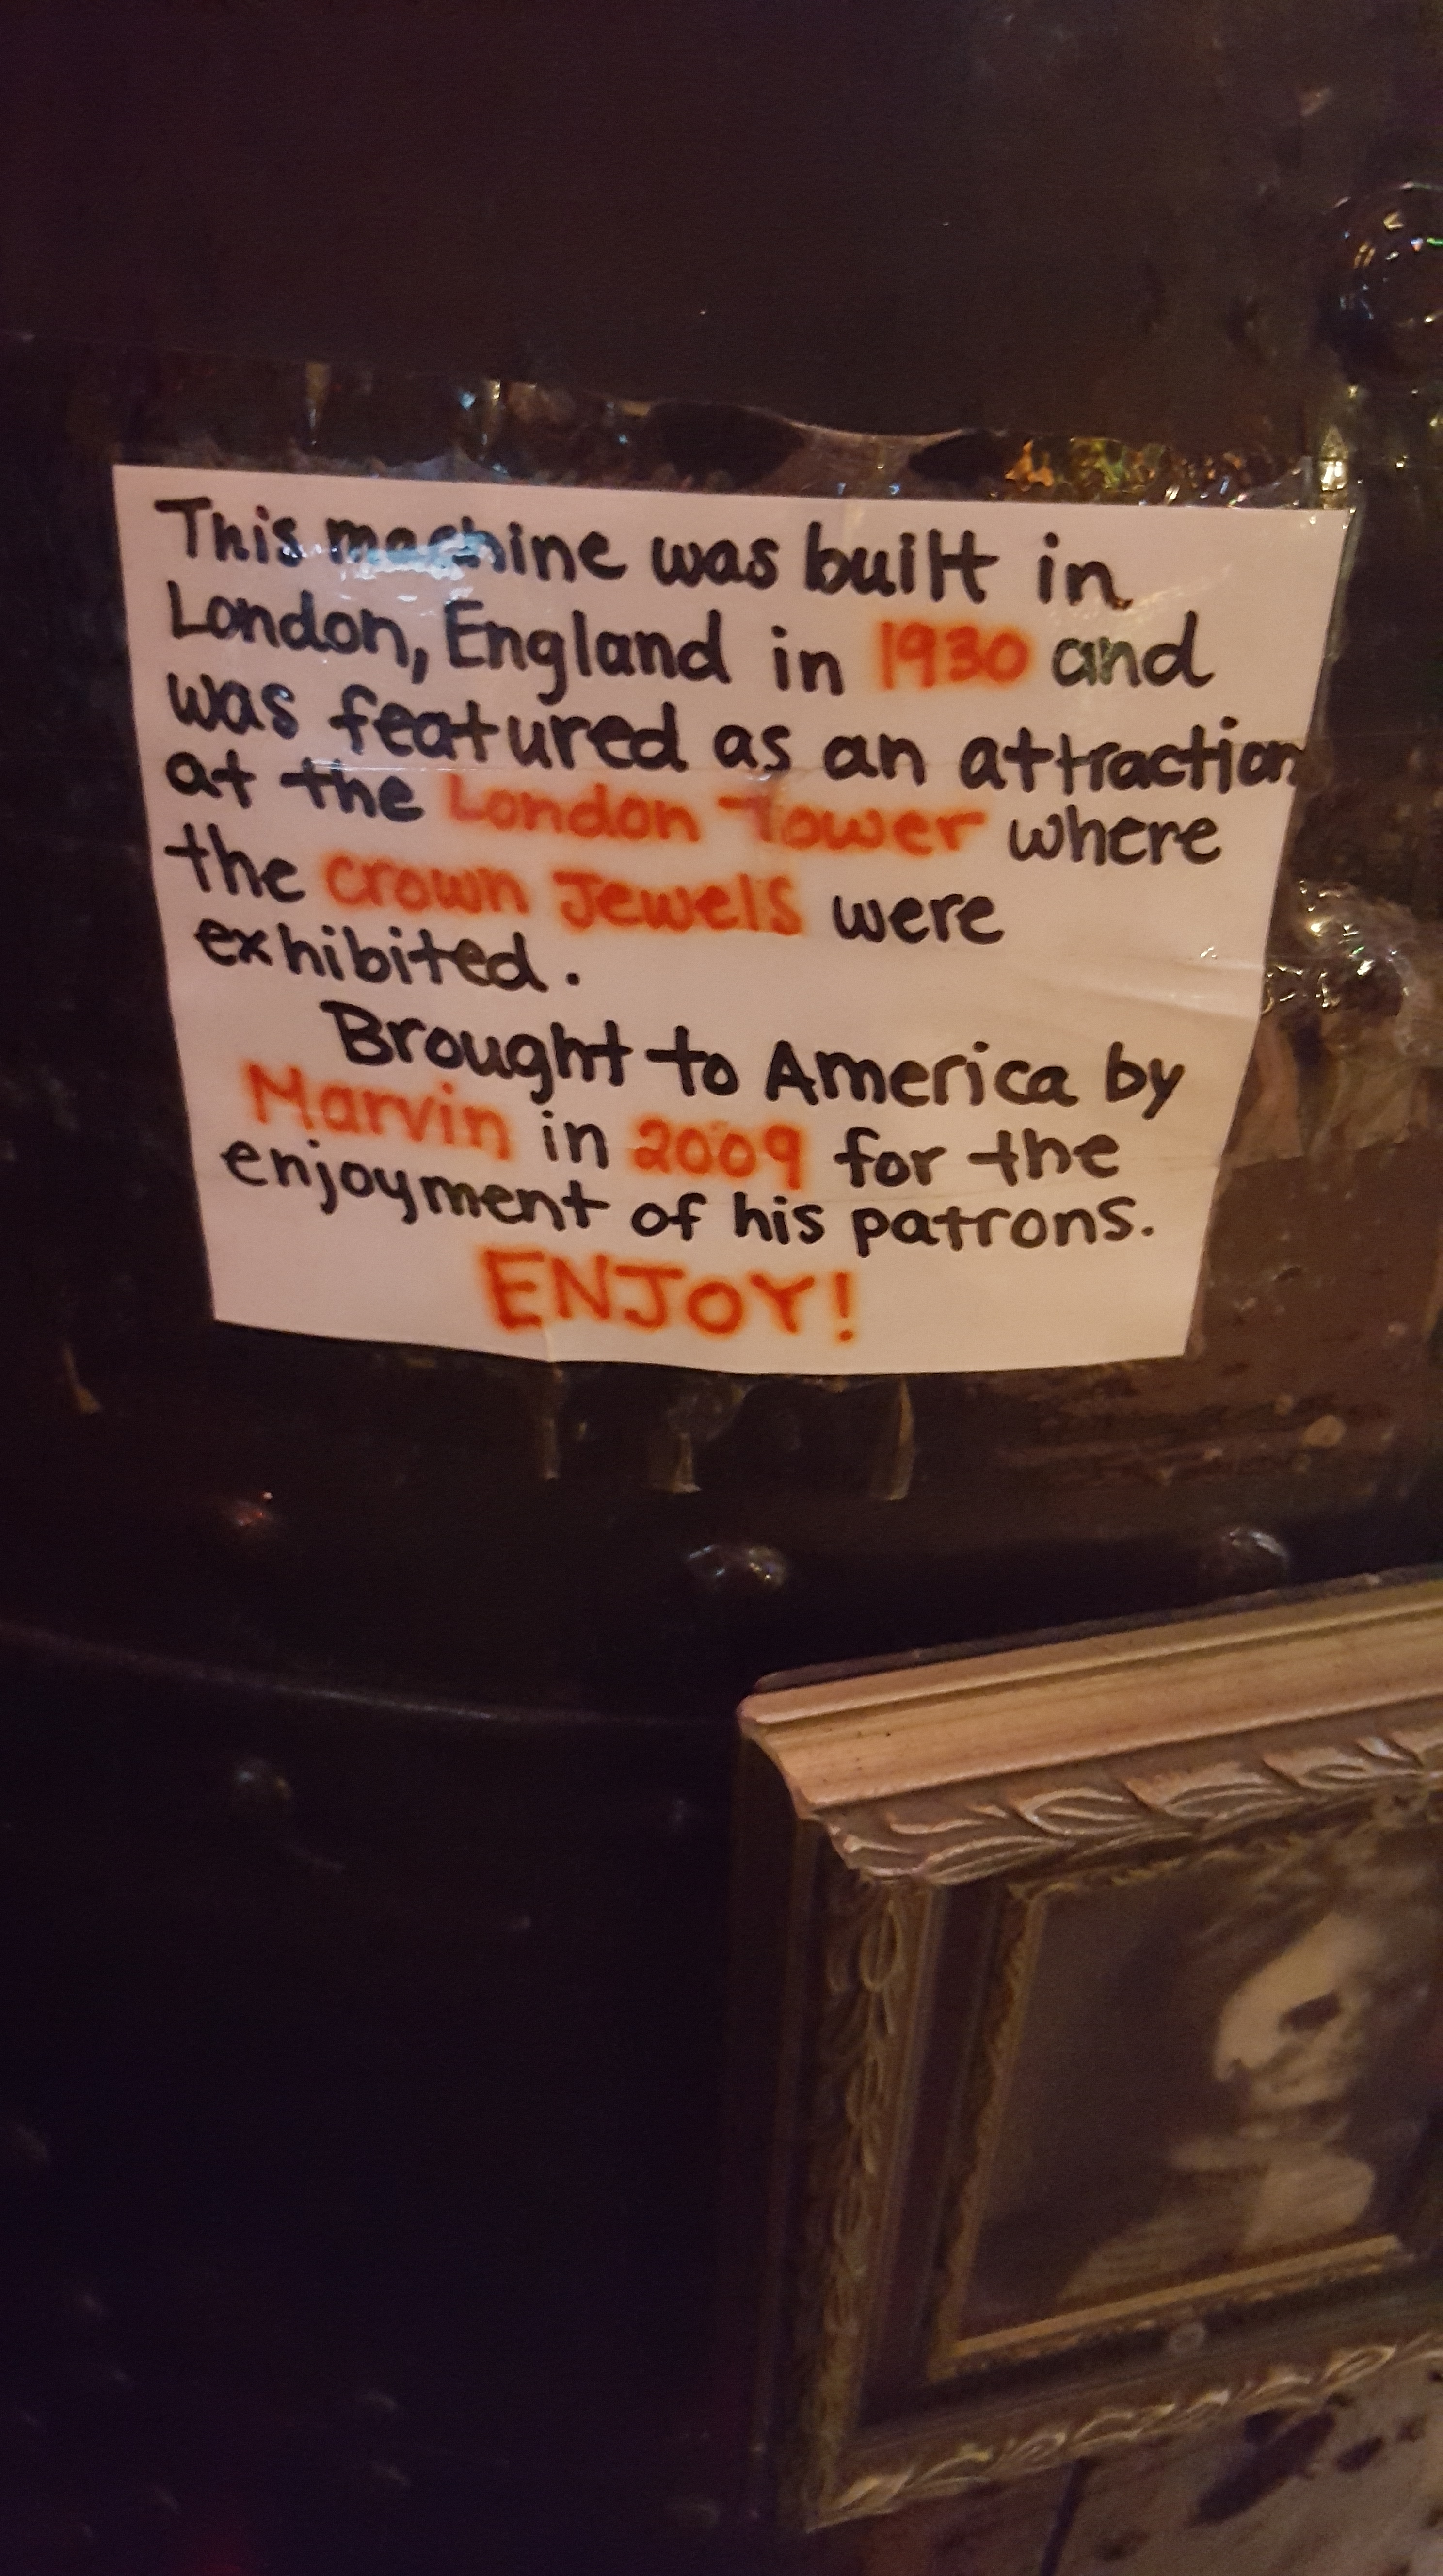 This machine was built in
London, England in 1930 and
was featured as an attraction
at the London Tower where
the crown Jewels were
exhibited.
Brought to America by
Marvin in 2009 for the
enjoyment of his patrons.
ENJOY!